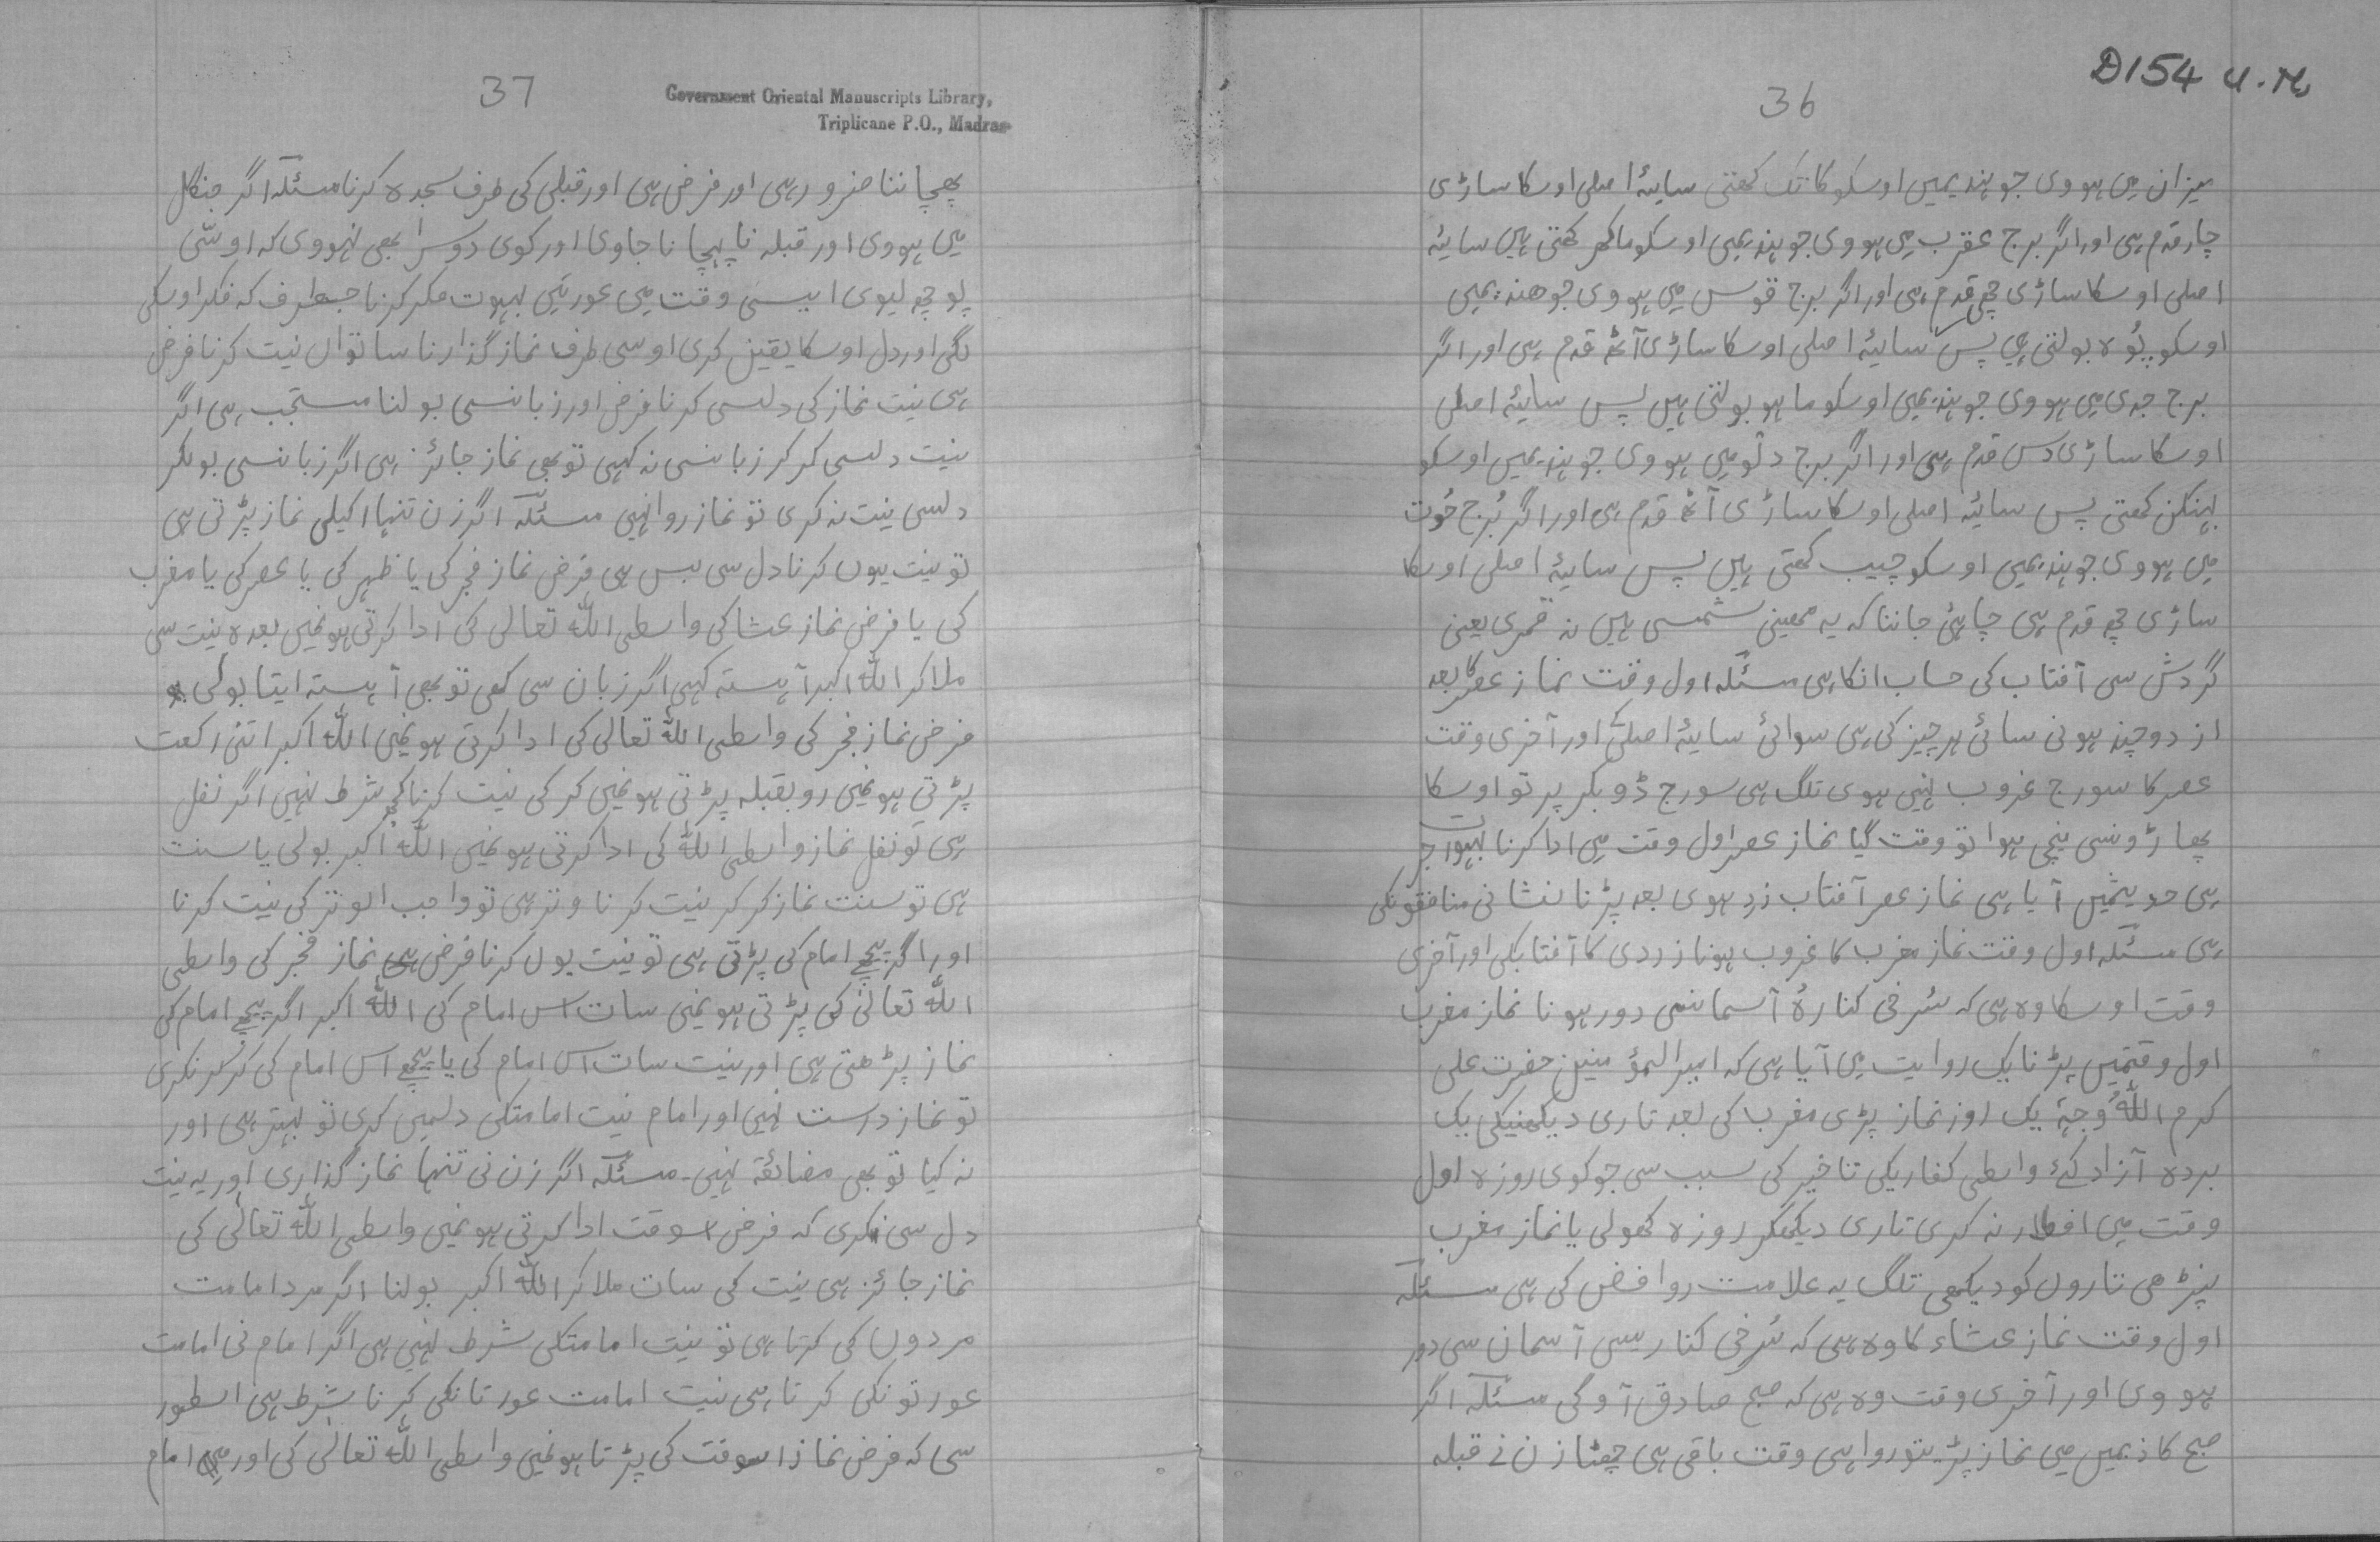 D154 U.M.
36
میزان میں ہووی جو ہندیمیں اوسکو کاتک کھتی سایۂ اصلی اوسکا ساڑی
چار قدم ہی اور اگر برج عقرب میں ہووی جو ہندیمیں اوسکو ماکھر کھتی ہیں سایۂ
اصلی اوسکا ساڑی چھی قدم ہی اور اگر برج قوس میں ہووی جو ھندیمیں
اوسکو پوُہ بولتی ہیں پس سایۂ اصلی اوسکا ساڑی آٹھ قدم ہی اور اگر
برج جدی میں ہووی جو ہندیمیں اوسکو ماہو بولتی ہیں پس سایۂ اصلی
اوسکا ساڑی دس قدم ہی اور اگر برج دلو میں ہووی جو ہندیمیں اوسکو
بہنکن کھتی پس سایۂ اصلی اوسکا ساڑی آٹھ قدم ہی اور اگر بُرج حُوت
میں ہووی جو ہندیمیں اوسکو چیب کھتی ہیں پس سایۂ اصلی اوسکا
ساڑی چھ قدم ہی چاہئ جاننا کہ یہ مھینی شمسی ہیں نہ قمری یعنی
گردش سی آفتاب کی حساب انکا ہی مسئلہ اول وقت نماز عصر کا بعد
از دوچند ہونی سائی ہر چیز کی ہی سوائ سایۂ اصلیکی اور آخری وقت
عصر کا سورج غروب نہیں ہوی تلگ ہی سورج ڈوبکر پر تو اوسکا
پھاڑونسی نیچی ہوا تو وقت گیا نماز عصر اول وقت میں ادا کرنا بہوت
ہی حدیثمیں آیا ہی نماز عصر آفتاب زرد ہوی بعد پڑنا نشانی منافقونکی
ہی مسئلہ اول وقت نماز مغرب کا غروب ہونا زردی کا آفتابکی اور آخری
وقت اوسکا وہ ہی کہ سُرخی کنارۂ آسمانسی دور ہونا نماز مغرب
اول وقتمیں پڑنا یک روایت میں آیا ہی کہ امیر المؤمنین حضرت علی
کرم اللہ وجہہ یک روز نماز پڑی مغرب کی بعد تاری دیکھنیکی یک
بردہ آزاد کئ واسطی کفاریکی تاخیر کی سبب سی جو کوی روزہ اول
وقت میں افطار نہ کری تاری دیکھکر روزہ کھولی یا نماز مغرب
نپڑھی تارون کو دیکھی تلگ یہ علامت روافض کی ہی مسئلہ
اول وقت نماز عشاء کا وہ ہی کہ سُرخی کناریسی آسمان سی دور
ہووی اور آخری وقت وہ ہی کہ صبح صادق آوگی مسئلہ اگر
صبح کاذبمیں میں نماز پڑیتو روا ہی وقت باقی ہی چھٹا زن نے قبلہ
37
Government Oriental Manuscripts Library,
Triplicane P.O., Madras
پھچاننا ضرور ہی اور فرض ہی اور قبلی کی طرف سجدہ کرنا مسئلہ اگر جنگل
میں ہووی اور قبلہ نا پہچانا جاوی اور کوی دوسرا بھی نہووی کہ اوسی
پوچھ لیوی ایسی وقت میں عورتیں بہوت فکر کرنا جسطرف کہ فکر اوسکی
لگی اور دل اوسکا یقین کری اوسی طرف نماز گذارنا ساتواں نیت کرنا فرض
ہی نیت نماز کی دلسی کرنا فرض اور زبانسی بولنا مستحب ہی اگر
نیت دلسی کر کر زبانسی نہ کہی تو بھی نماز جائز ہی اگر زبانسی بولکر
دلسی نیت نہ کری تو نماز روا نہیں مسئلہ اگر زن تنہا اکیلی نماز پڑتی ہی
تو نیت یوں کرنا دل سی بس ہی فرض نماز فجر کی یا ظہر کی یا عصر کی یا مغرب
کی یا فرض نماز عشا کی واسطی اللہ تعالی کی ادا کرتی ہو نمیں بعدہ نیت سی
ملا کر اللہ اکبر آہستہ کہی اگر زبان سی کھی تو بھی آہستہ ایتا بولی
فرض نماز فجر کی واسطی اللہ تعالی کی ادا کرتی ہو نمیں اللہ اکبر اتنی رکعت
پڑتی ہو نمیں رو بقبلہ پڑتی ہو نمیں کر کی نیت کرنا کچھ شرط نہیں اگر نفل
ہی تو نفل نماز واسطی اللہ کی ادا کرتی ہو نمیں اللہ اکبر بولی یا سنت
ہی تو سنت نماز کر کر نیت کرنا وتر ہی تو واجب الوتر کی نیت کرنا
اور اگر پیچھے امام کی پڑتی ہی تو نیت یوں کرنا فرض نماز فجر کی واسطی
اللہ تعالیٰ کی پڑتی ہو نمیں سات اس امام کی اللہ اکبر اگر پیچھے امام کی
نماز پڑھتی ہی اور نیت سات اس امام کی یا پیچھے اس امام کی کر کر نکری
تو نماز درست نہیں اور امام نیت امامتکی دلمیں کری تو بہتر ہی اور
نہ کیا تو بھی مضائقہ نہیں۔ مسئلہ اگر زن نی تنہا نماز گذاری اور یہ نیت
دل سی نکری کہ فرض اسوقت ادا کرتی ہو نمیں واسطی اللہ تعالیٰ کی
نماز جائز ہی نیت کی سات ملا کر اللہ اکبر بولنا اگر مرد امامت
مردوں کی کرتا ہی تو نیت امامتکی شرط نہیں ہی اگر امام نی امامت
عورتونکی کرتا ہی نیت امامت عورتانکی کرنا شرط ہی اسطور
سی کہ فرض نماز اسوقت کی پڑتا ہو نمیں واسطی اللہ تعالیٰ کی اور میں امام